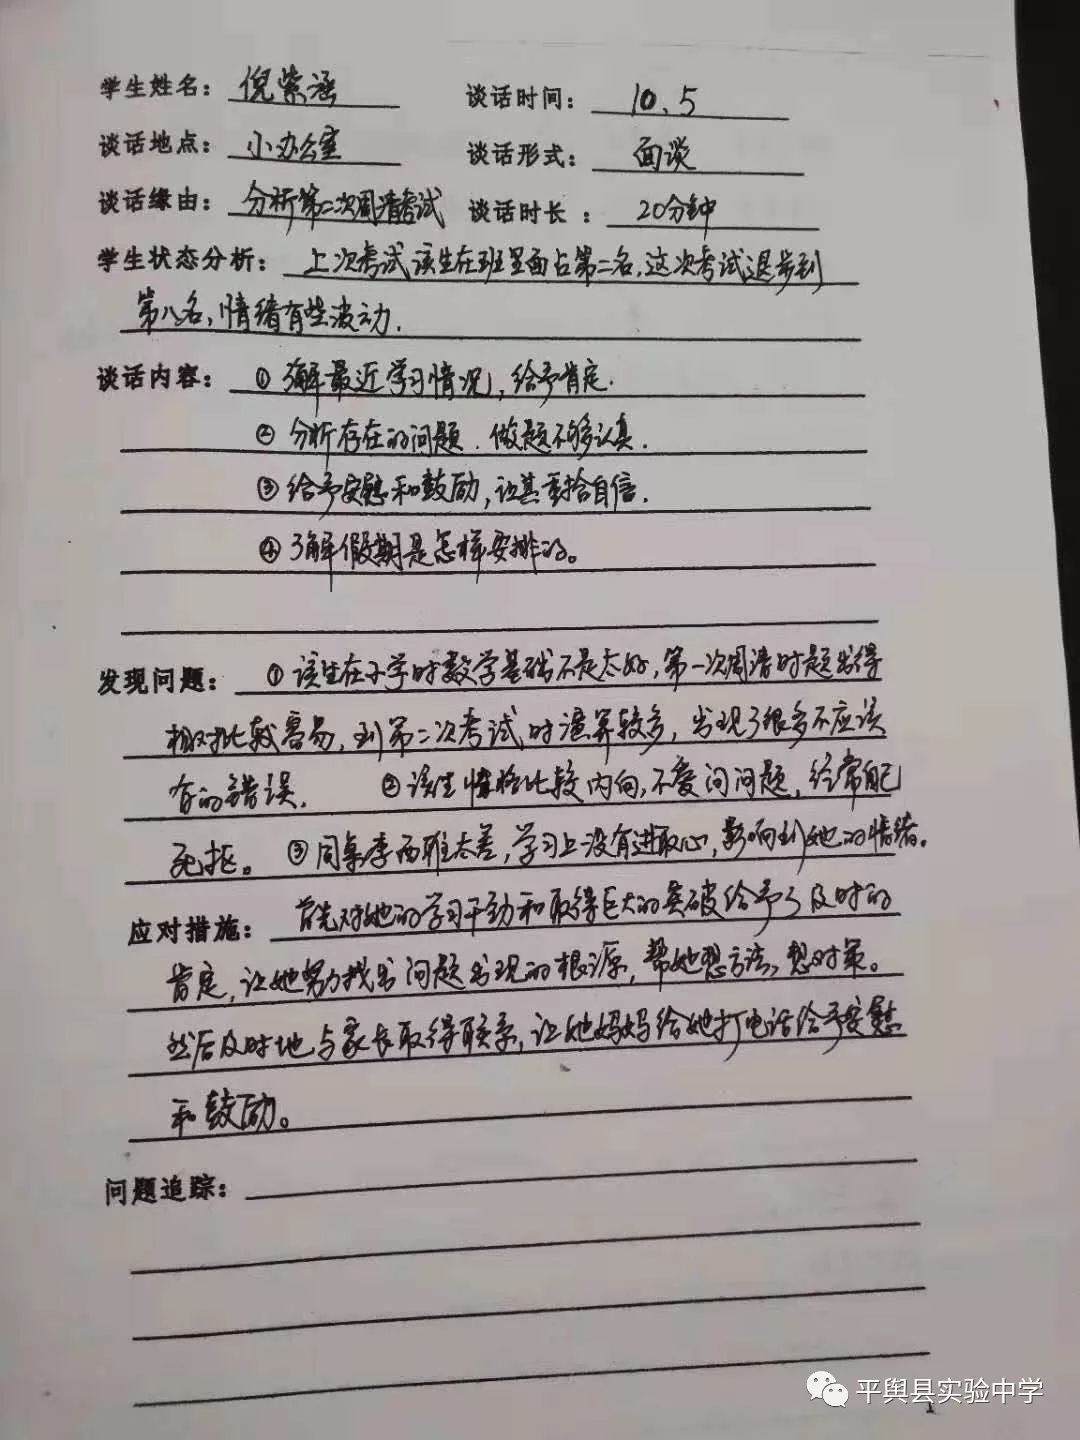 学生姓名：倪紫涵 谈话时间：10.5
谈话地点：小办公室 谈话形式：面谈
谈话缘由：分析第二次周清考试 谈话时长：20分钟
学生状态分析：上次考试该生在班里面占第二名，这次考试退步到
第八名，情绪有些波动.
谈话内容：①了解最近学习情况，给予肯定.
②分析存在的问题.做题不够认真.
③给予安慰和鼓励，让其重拾自信.
④了解假期是怎样安排的。
发现问题：①该生在小学时数学基础不是太好，第一次周清时题出得
相对比较容易，到第二次考试时演算较多，出现了很多不应该
有的错误. ②该生性格比较内向，不爱问问题，经常自己
死抠。③同桌李西雅太差，学习上没有进取心，影响到她的情绪。
应对措施：首先对她的学习干劲和取得巨大的突破给予了及时的
肯定，让她努力找出问题出现的根源，帮她想方法，想对策。
然后及时地与家长取得联系，让她妈妈给她打电话给予安慰
和鼓励。
问题追踪：
平舆县实验中学
1